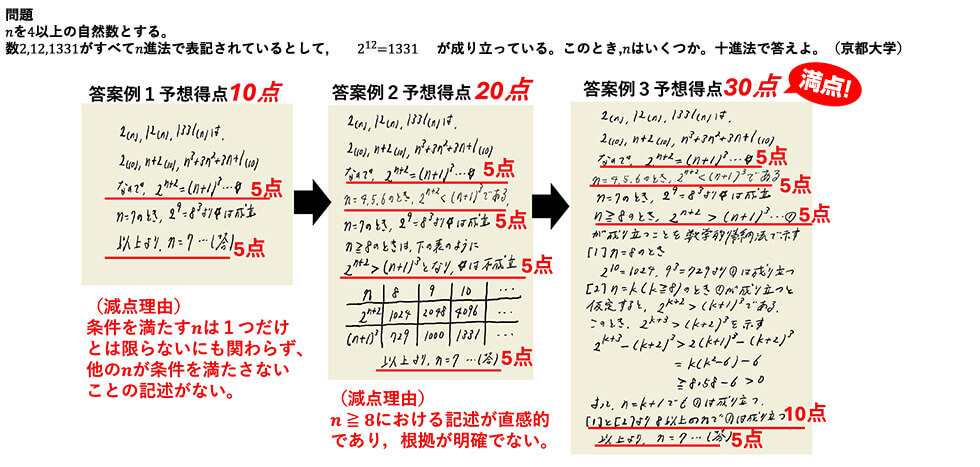 問題
nを4以上の自然数とする。
数2,12,1331がすべてn進法で表記されているとして， 2^12=1331 が成り立っている。このとき,nはいくつか。十進法で答えよ。（京都大学）
答案例１予想得点10点
2(n), 12(n), 1331(n)は,
2(10), n+2(10), n³+3n²+3n+1(10)
なので, 2^{n+2}=(n+1)³…① 5点
n=7のとき, 2⁹=8³より①は成立
以上より, n=7…(答) 5点
（減点理由）
条件を満たすnは１つだけ
とは限らないにも関わらず、
他のnが条件を満たさない
ことの記述がない。
答案例２予想得点20点
2(n), 12(n), 1331(n)は,
2(10), n+2(10), n³+3n²+3n+1(10)
なので, 2^{n+2}=(n+1)³…① 5点
n=4,5,6のとき, 2^{n+2}<(n+1)³である,
n=7のとき, 2⁹=8³より①は成立 5点
n≧8のときは, 下の表のように
2^{n+2}>(n+1)³となり, ①は不成立 5点
n 8 9 10 …
2^{n+2} 1024 2048 4096 …
(n+1)³ 729 1000 1331 …
以上より, n=7…(答) 5点
（減点理由）
n≧8における記述が直感的
であり，根拠が明確でない。
答案例３予想得点30点
満点!
2(n), 12(n), 1331(n)は,
2(10), n+2(10), n³+3n²+3n+1(10)
なので, 2^{n+2}=(n+1)³…① 5点
n=4,5,6のとき, 2^{n+2}<(n+1)³である 5点
n=7のとき, 2⁹=8³より①は成立
n≧8のとき, 2^{n+2}>(n+1)³…① 5点
が成り立つことを数学的帰納法で示す
[1]n=8のとき
2¹⁰=1024, 9³=729より①は成り立つ
[2]n=k(k≧8)のとき①が成り立つと
仮定すると, 2^{k+2}>(k+1)³である.
このとき, 2^{k+3}>(k+2)³を示す
2^{k+3}-(k+2)³>2(k+1)³-(k+2)³
=k(k²-6)-6
≧8・58-6>0
よって, n=k+1でも①は成り立つ.
[1]と[2]より8以上のnで①は成り立つ 10点
以上より, n=7…(答) 5点